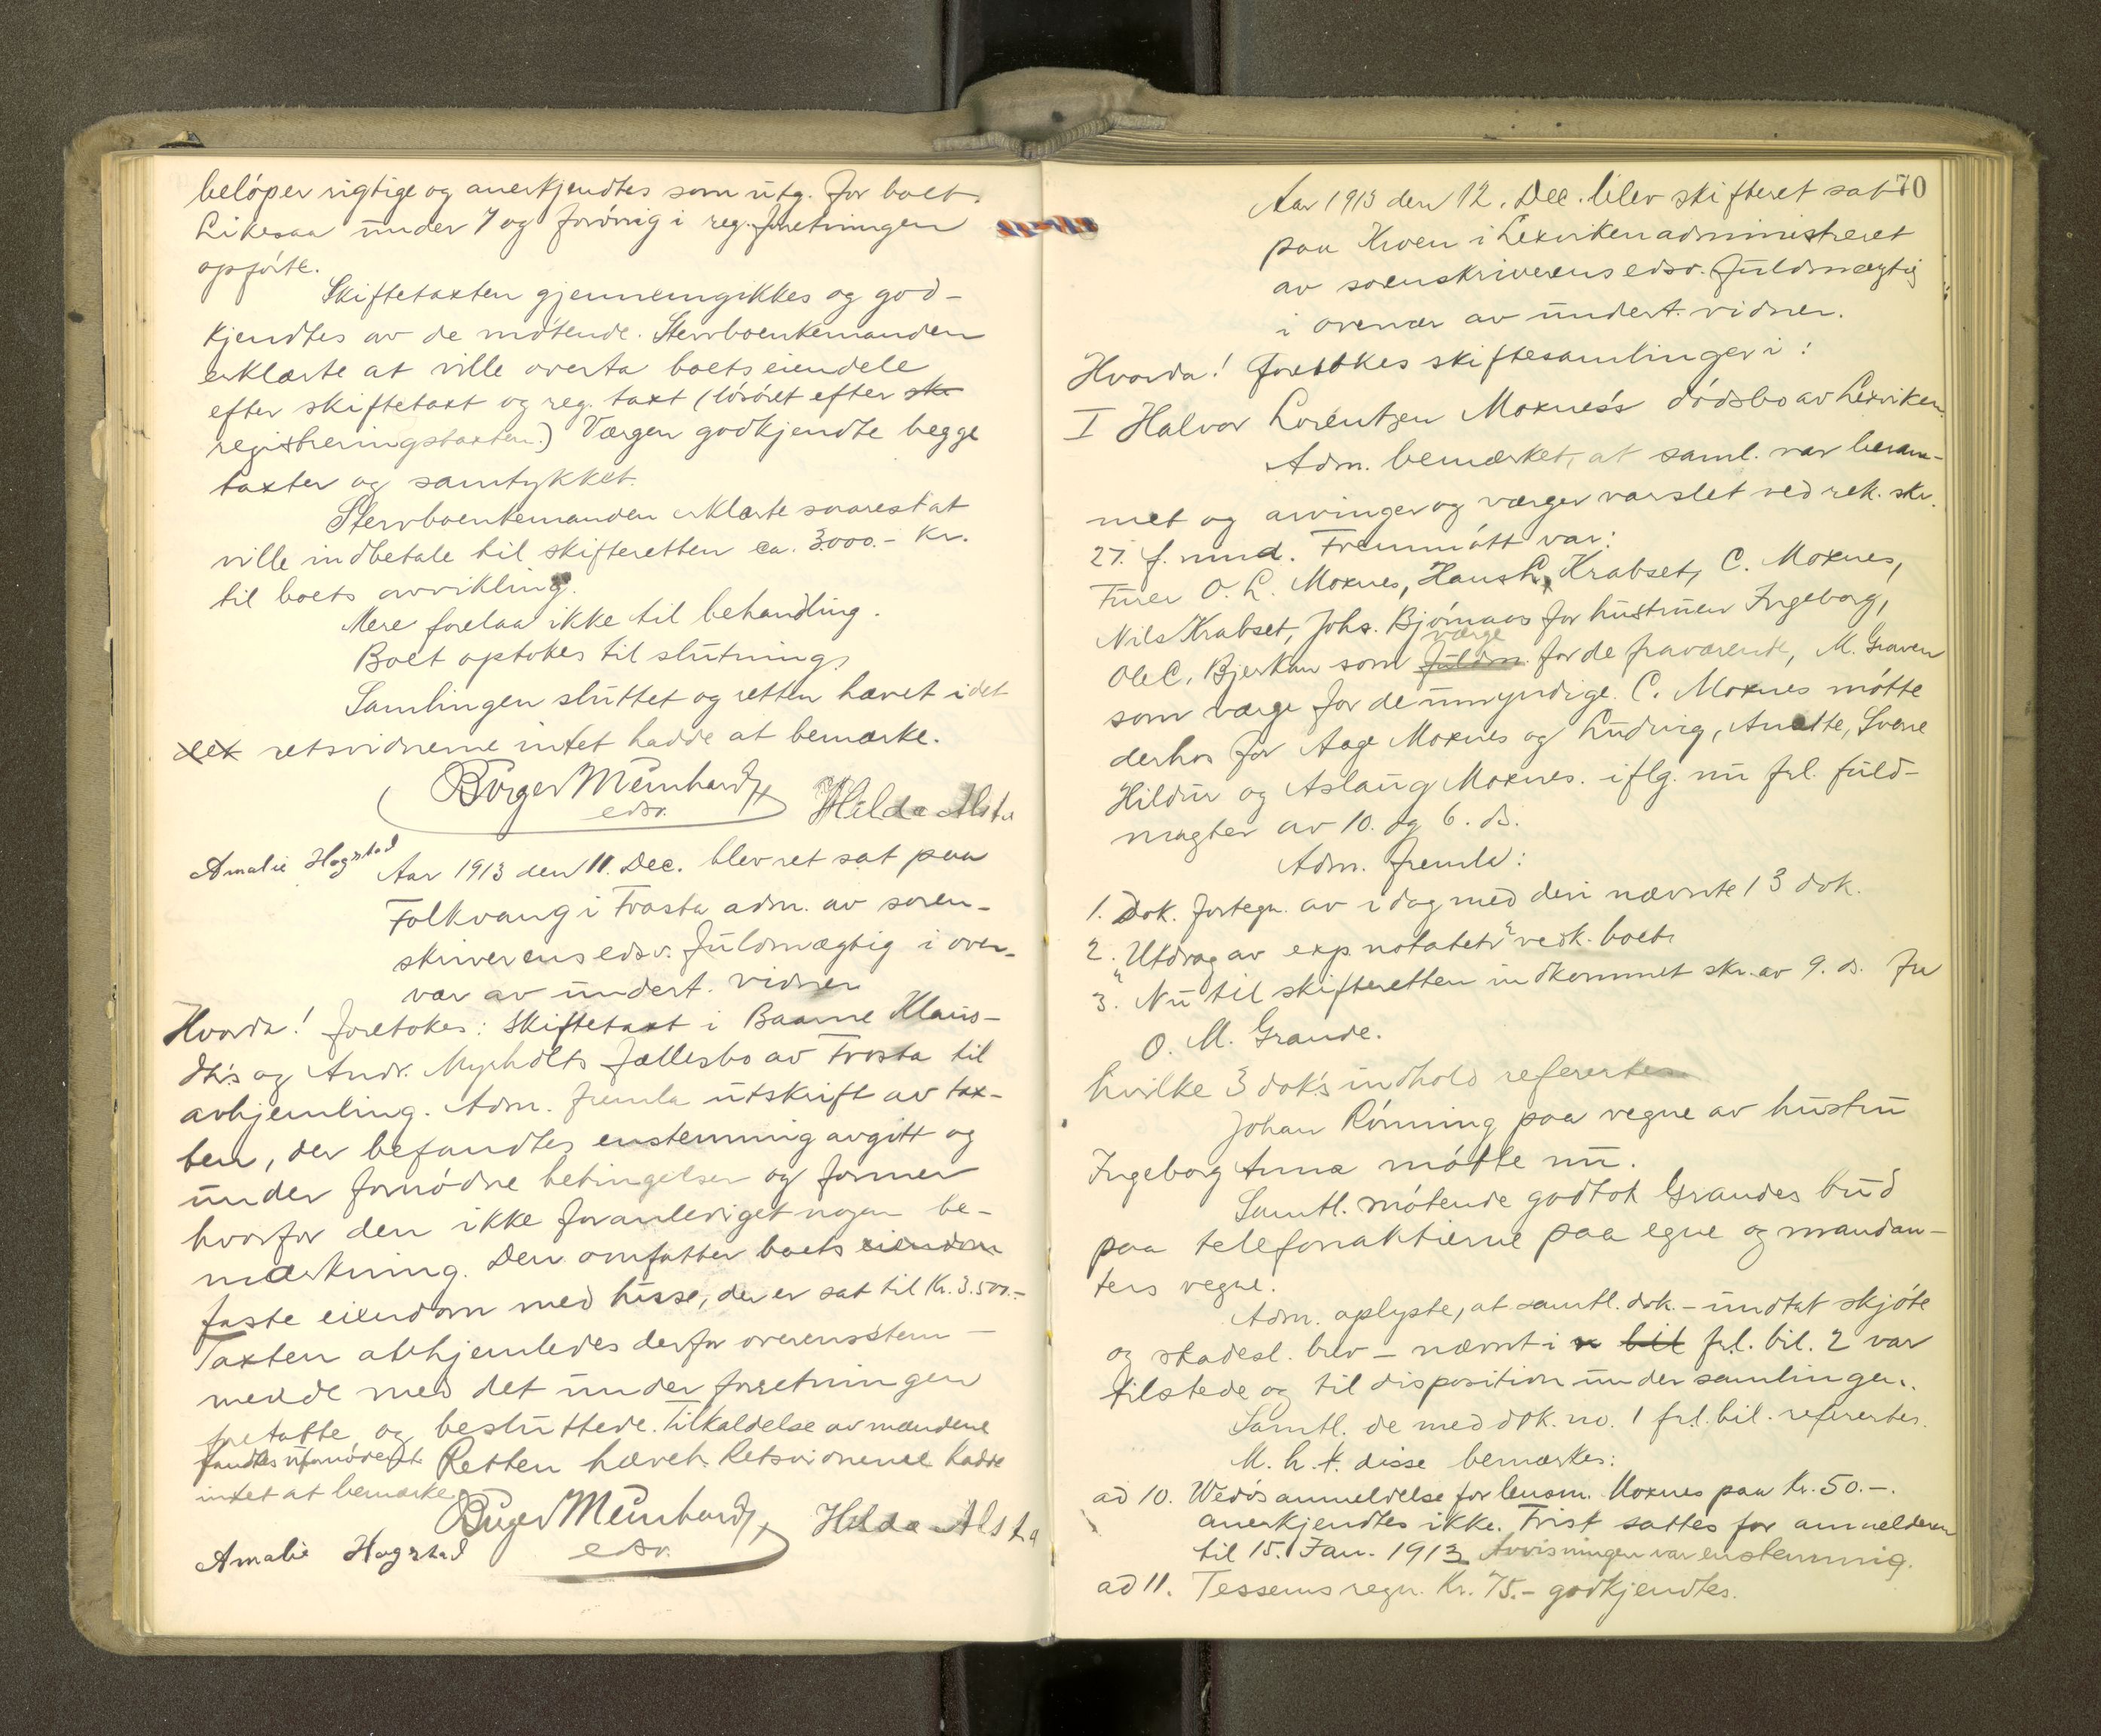 beløper rigtige og anerkjendtes som utg. for boet.
Likesaa under 7 og forøvrig i reg. forretningen
opførte.
Skiftetaxten gjennemgikkes og god-
kjendtes av de møtende. Stervboenkemanden
erklærte at ville overta boets eiendele
efter skiftetaxt og reg. taxt (løsøret efter ske
registreringstaxten.) Værgen godkjendte begge
taxter og samtykket.
Stervboenkemanden erklærte snarest at
ville indbetale til skifteretten ca. 3000.- Kr.
til boets avvikling.
Mere forelaa ikke til behandling.
Boet optokes til slutning.
Samlingen sluttet og retten hævet i det
det retsvidnerne intet hadde at bemærke.
Birger Meinhardt
edsv.
Hilda Alstad
Amalie Hogstad
Aar 1913 den 11. Dec. blev ret sat paa
Folkvang i Frosta adm. av soren-
skriverens edsv. fuldmægtig i over-
vær av undert. vidner
Hvorda! foretokes: Skiftetaxt i Baarne Klaus-
dtr's og Andr. Myrholts fællesbo av Frosta til
avhjemling. Adm. fremla utskrift av tax-
ten, der befandtes enstemmig avgitt og
under fornødne betingelser og former
hvorfor den ikke foranlediget nogen be-
mærkning. Den omfatter boets eiendom
faste eiendom med husse, der er sat til Kr. 3.500.-
Taxten avhjemledes derfor overensstem-
mende med det under forretningen
foretatte og besluttede. Tilkaldelse av mændene
fandtes ufornødent. Retten hævet. Retsvidnerne hadde
intet at bemærke.
Birger Meinhardt
edsv.
Hilda Alstad
Amalie Hogstad
70
Aar 1913 den 12. Dec. blev skifteret sat
paa Kroen i Lexviken administreret
av sorenskriverens edsv. fuldmægtig
i overvær av undert. vidner.
Hvorda! foretokes skiftesamlinger i:
I Halvor Lorentzen Moxnes's dødsbo av Lexviken.
Adm. bemærket, at saml. var beram-
met og arvinger og værger varslet ved rek. skr.
27. f. mnd. Fremmøtt var:
O. L. Moxnes, Hans L. Krabset, C. Moxnes,
Nils Krabset, Johs. Bjørnaas for hustruen Ingeborg,
værge
Ole C. Bjerkan som fuldm. for de fraværende, M. Graven
som værge for de umyndige. C. Moxnes møtte
derhos for Aage Moxnes og Ludvig, Anette, Sverre
Hildur og Aslaug Moxnes. iflg. nu frl. fuld-
magter av 10. og 6. ds.
Adm. fremla:
1. Dok. fortegn. av idag med deri nævnte 13 dok.
2. Utdrag av exp. notatets vedk. boet.
3. Nu til skifteretten indkommet skr. av 9. ds. fra
O. M. Grande.
hvilke 3 dok's indhold refererтes
Johan Rønning paa vegne av hustru
Ingeborg Anna møtte nu.
Samtl. møtende godtok Grandes bud
paa telefonaktierne paa egne og mandan-
ters vegne.
Adm. oplyste, at samtl. dok. - undtat skjøte
og skadesl. brev - nævnt i bil frl. bil. 2 var
tilstede og til disposition under samlingen.
Samtl. de med dok. no. 1 frl. bil. refererтes.
M. h. t. disse bemærkes:
ad 10. Wedøs anmeldelse for lensm. Moxnes paa Kr. 50.-.
anerkjendtes ikke. Frist sattes for anmelderen
til 15. Jan. 1913 Avvisningen var enstemmig.
ad 11. Tessems regn. Kr. 75.- godkjendtes.